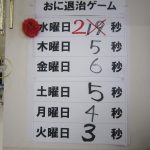 おに退治ゲーム
水曜日 219 秒
木曜日 5 秒
金曜日 6 秒
土曜日 5 秒
月曜日 4 秒
火曜日 3 秒